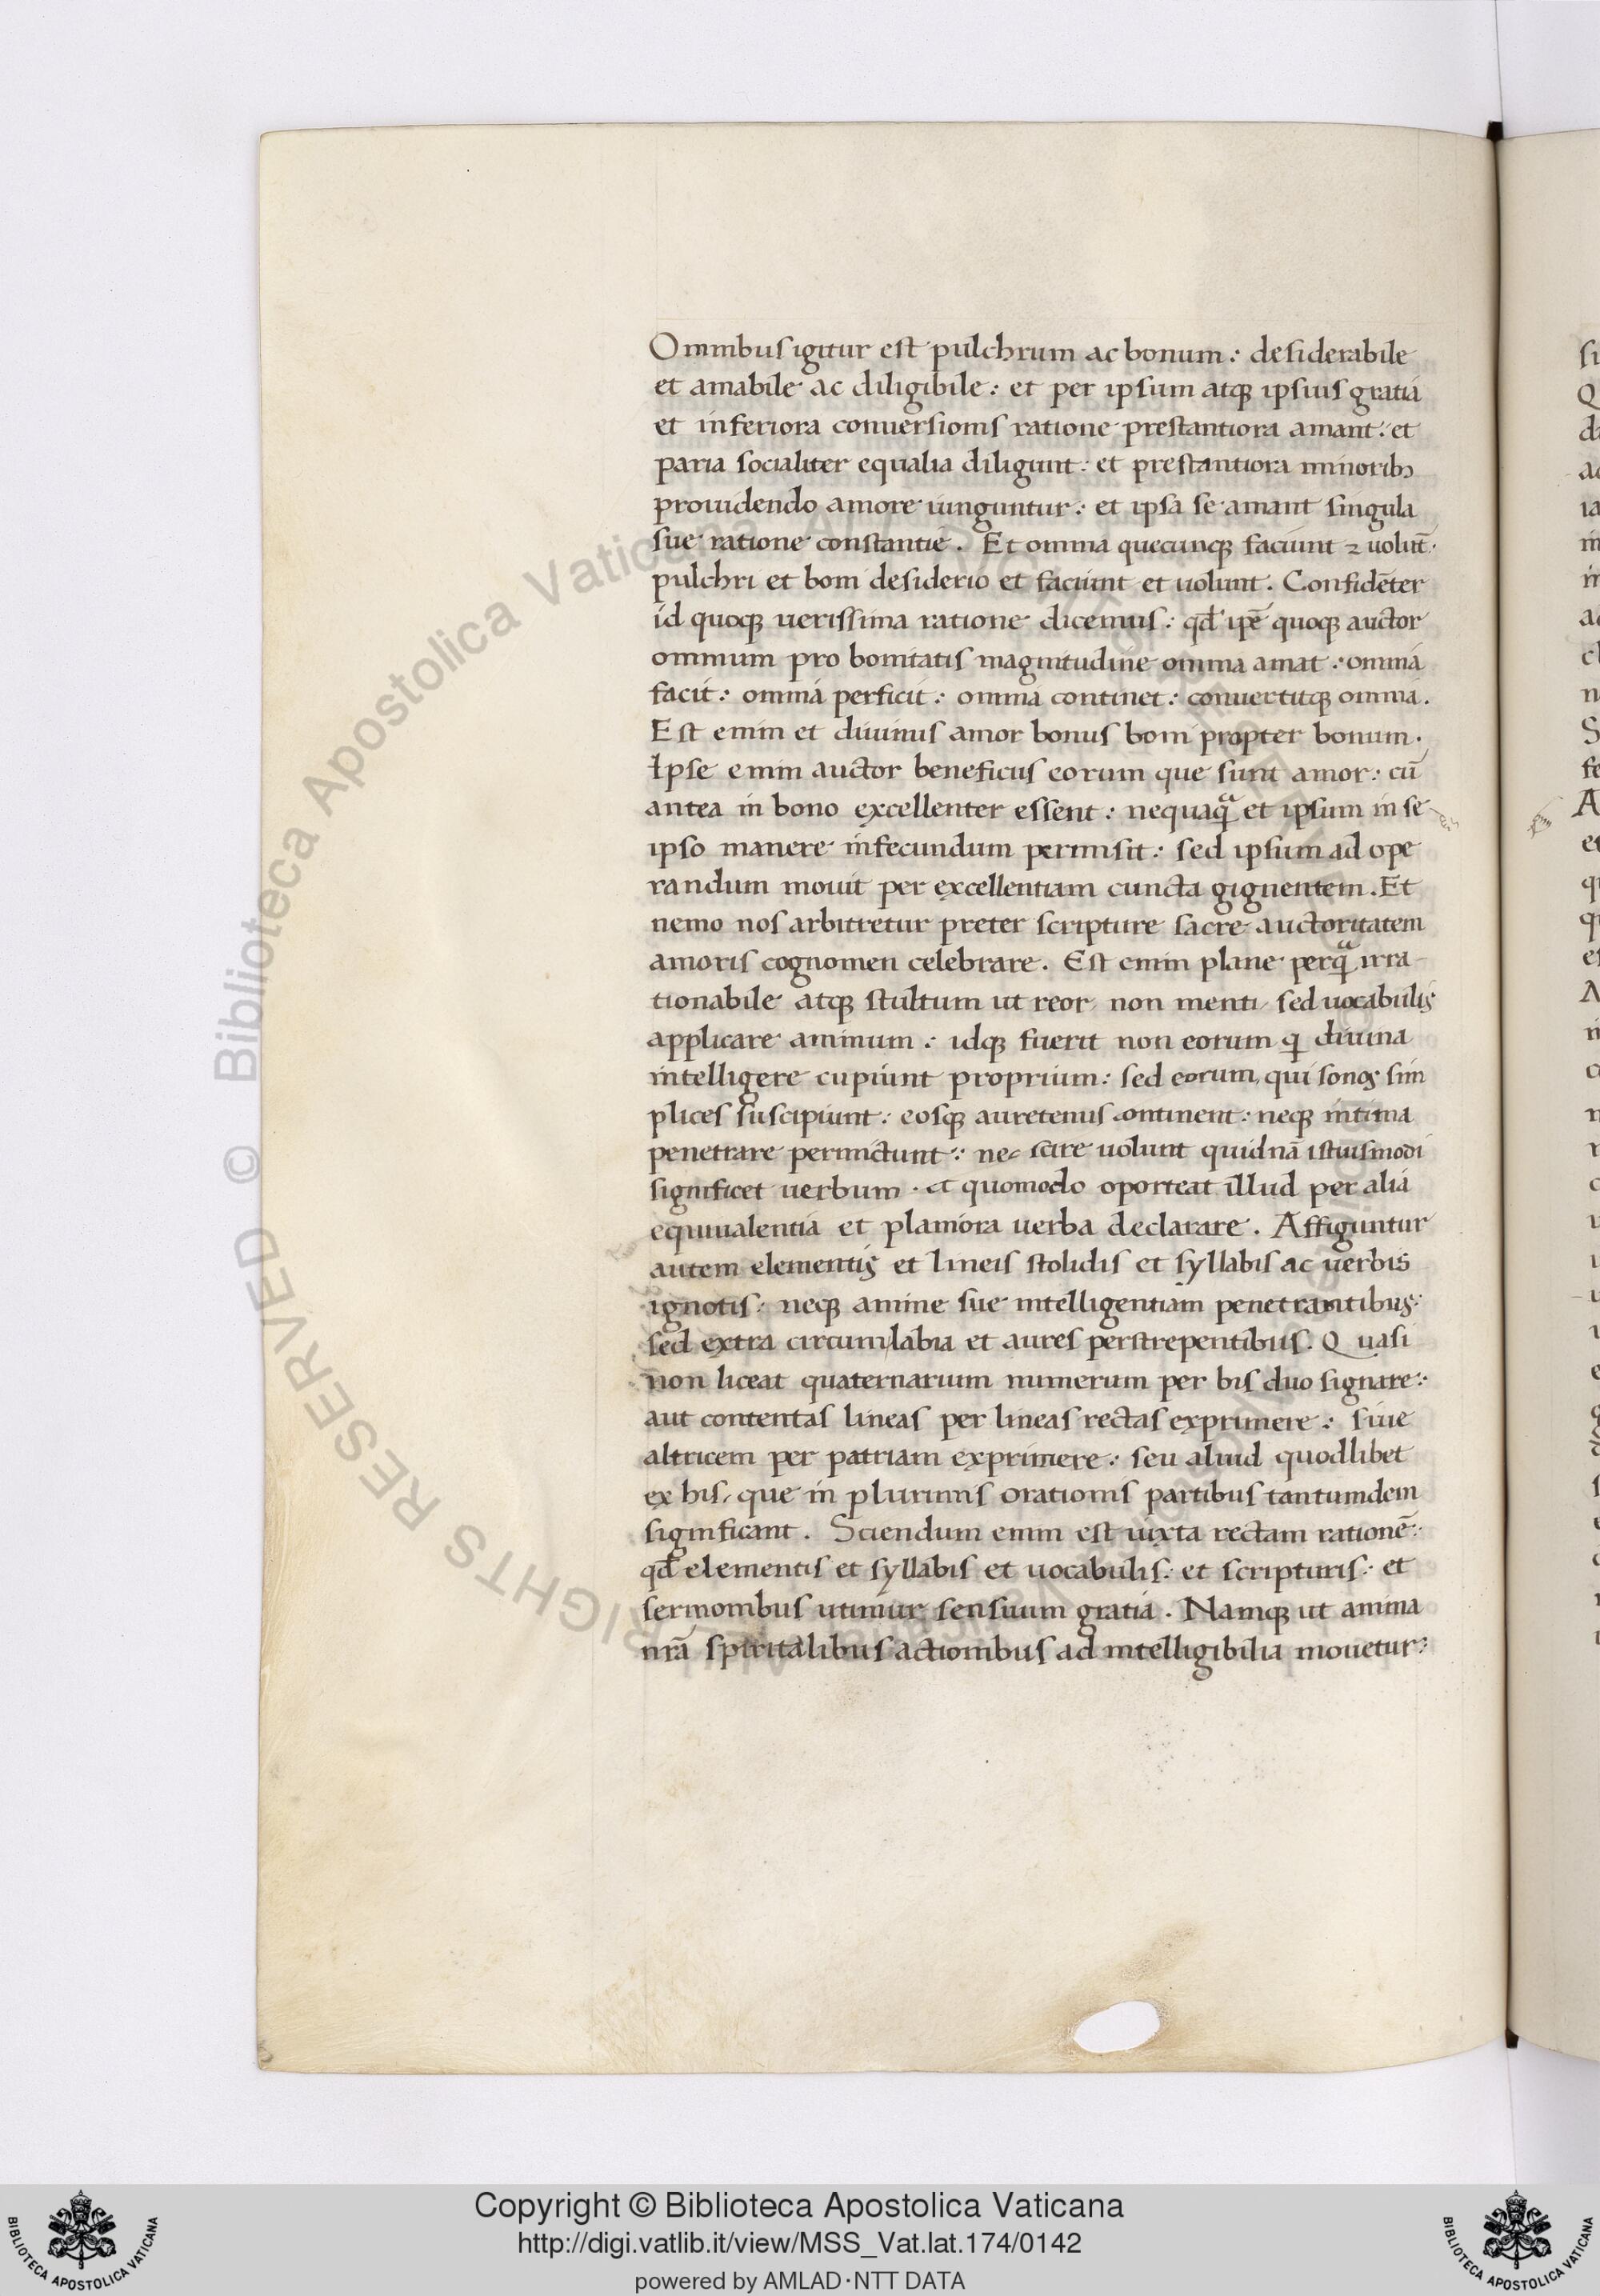 Omnibus igitur est pulchrum ac bonum : desiderabile
et amabile ac diligibile : et per ipsum atqꝫ ipsius gratiā
et inferiora conuersionis ratione prestantiora amant : et
paria socialiter equalia diligunt : et prestantiora minoribꝫ
prouidendo amore iunguntur : et ipsa se amant singula
sue ratione constantie . Et omnia quecunqꝫ faciunt ⁊ uolūt :
pulchri et boni desiderio et faciunt et uolunt . Confidēter
id quoqꝫ uerissima ratione dicemus : qđ ip̄e quoqꝫ auctor
omnium pro bonitatis magnitudine omnia amat : omnia
facit : omnia perficit : omnia continet : conuertitqꝫ omnia .
Est enim et diuinus amor bonus boni propter bonum .
Ipse enim auctor beneficus eorum que sunt amor : cū
antea in bono excellenter essent : nequaqᷓ et ipsum in se
ipso manere infecundum permisit : sed ipsum ad ope
randum mouit per excellentiam cuncta gignentem . Et
nemo nos arbitretur preter scripture sacre auctoritatem
amoris cognomen celebrare . Est enim plane perqᷓ irra-
tionabile atqꝫ stultum ut reor, non menti, sed uocabulis
applicare animum : idqꝫ fuerit non eorum q̨ diuina
intelligere cupiunt proprium : sed eorum, qui sonos sim
plices suscipiunt : eosqꝫ auretenus continent : neqꝫ intima
penetrare permictunt : nec scire uolunt quidnā istiusmodi
significet uerbum . et quomodo oporteat illud per alia
equiualentia et planiora uerba declarare . Affiguntur
autem elementis et lineis stolidis et syllabis ac uerbis
ignotis : neqꝫ anime sue intelligentiam penetrantibus :
sed extra circumlabia et aures perstrepentibus . Quasi
non liceat quaternarium numerum per bis duo signare :
aut contentas lineas per lineas rectas exprimere : siue
altricem per patriam exprimere : seu aliud quodlibet
ex his, que in plurimis orationis partibus tantumdem
significant . Sciendum enim est iuxta rectam rationē :
qđ elementis et syllabis et uocabulis : et scripturis : et
sermonibus utimur sensuum gratia . Namqꝫ ut anima
nr̄a spiritalibus actionibus ad intelligibilia mouetur :
© Biblioteca Apostolica Vaticana ALL RIGHTS RESERVED
Copyright © Biblioteca Apostolica Vaticana
http://digi.vatlib.it/view/MSS_Vat.lat.174/0142
powered by AMLAD·NTT DATA
BIBLIOTECA APOSTOLICA VATICANA
BIBLIOTECA APOSTOLICA VATICANA